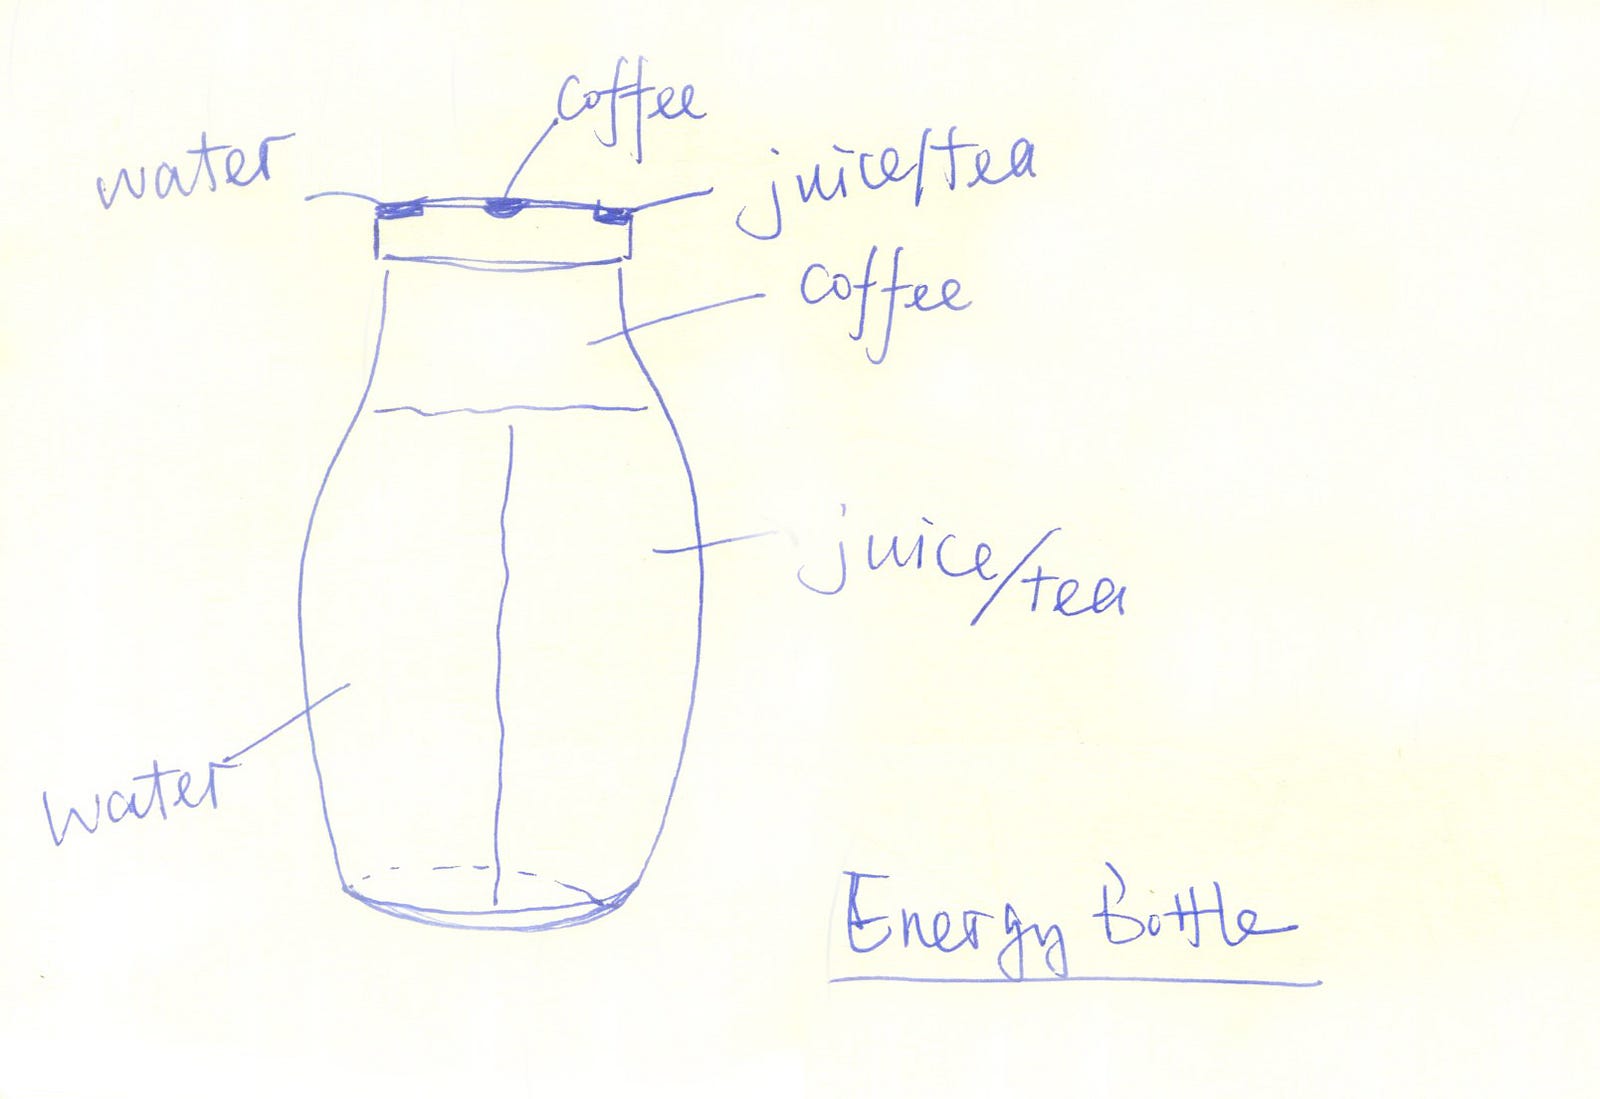 coffee
water
juice/tea
coffee
juice/tea
water
Energy Bottle